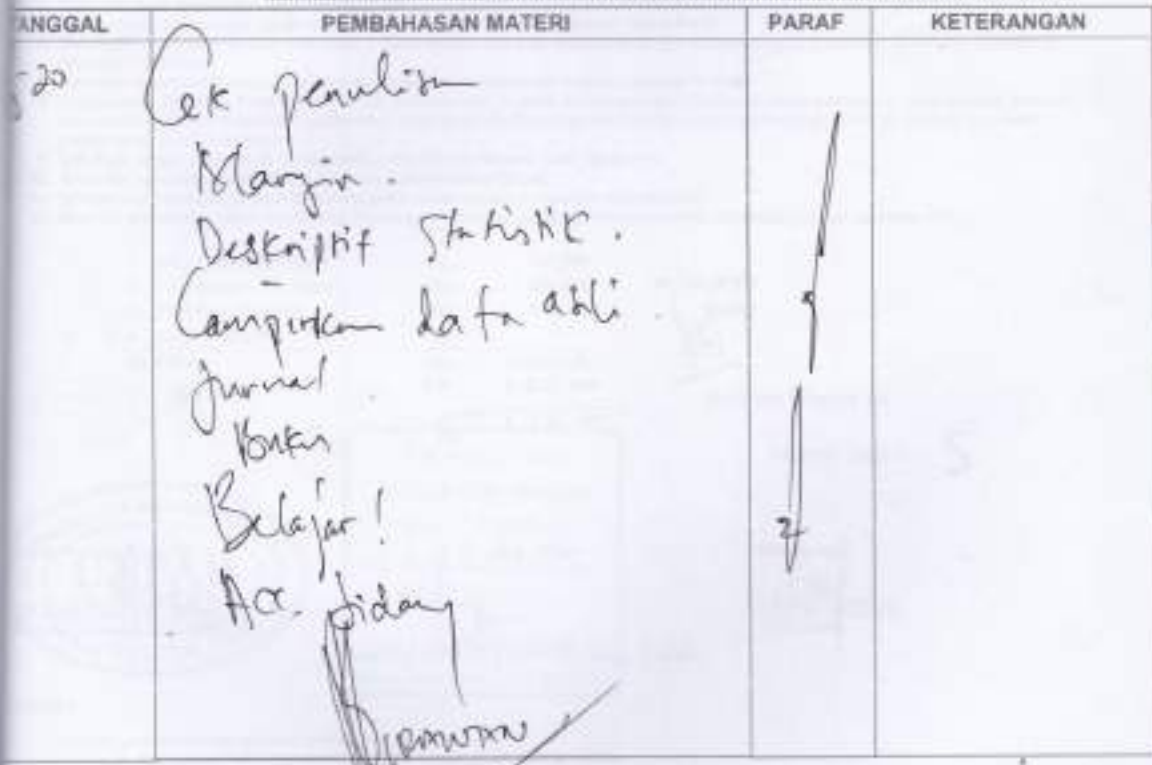 ANGGAL PEMBAHASAN MATERI PARAF KETERANGAN
20 Cek penulisan
Margin.
Deskriptif Statistik.
Lampirkan data asli.
Jurnal
Buku
Belajar!
Acc. Sidang